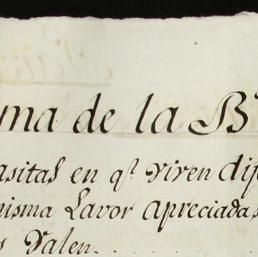 ma de la B
asitas en q.ͤ viven di
misma Lavor apreciadas
s Valen